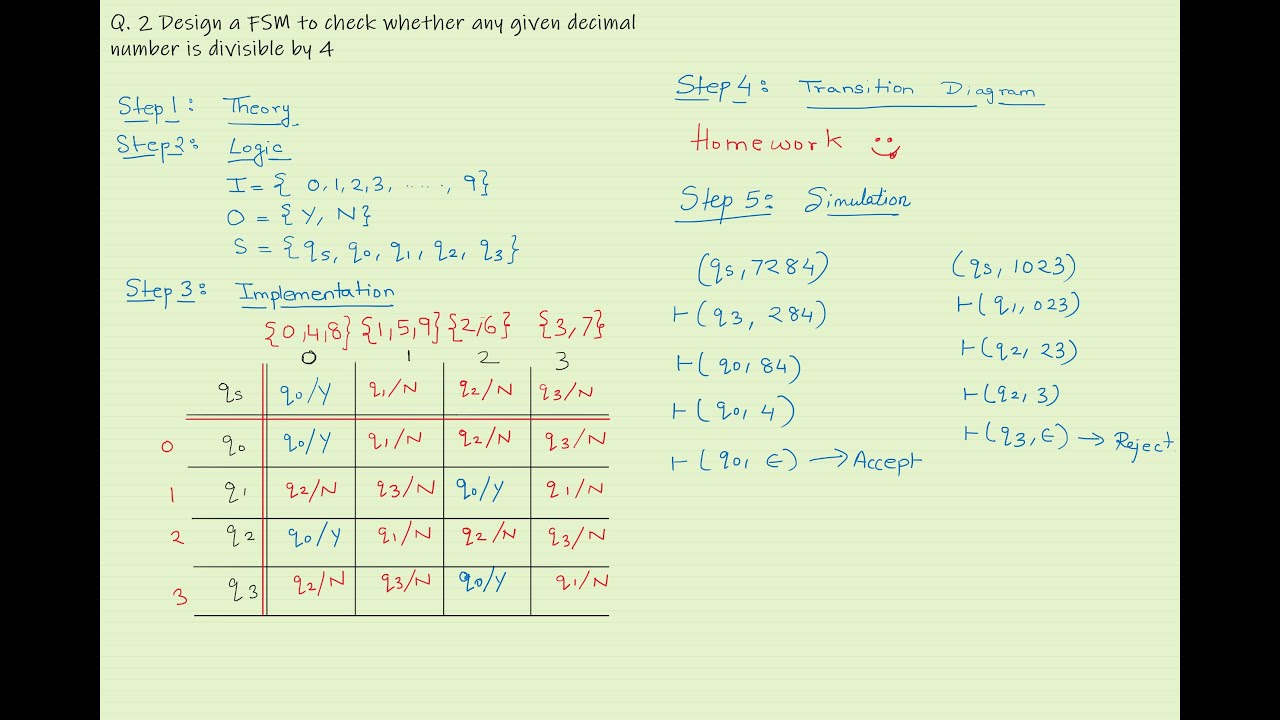 Q. 2 Design a FSM to check whether any given decimal
number is divisible by 4
Step 1: Theory
Step 2: Logic
I = { 0, 1, 2, 3, ......, 9}
O = { Y, N}
S = {qs, q0, q1, q2, q3}
Step 3: Implementation
{0,4,8} {1,5,9} {2,6} {3,7}
0 1 2 3
qs q0/Y q1/N q2/N q3/N
0 q0 q0/Y q1/N q2/N q3/N
1 q1 q2/N q3/N q0/Y q1/N
2 q2 q0/Y q1/N q2/N q3/N
3 q3 q2/N q3/N q0/Y q1/N
Step 4: Transition Diagram
Homework
Step 5: Simulation
(qs, 7284)
⊢(q3, 284)
⊢(q0, 84)
⊢(q0, 4)
⊢(q0, ∈) → Accept
(qs, 1023)
⊢(q1, 023)
⊢(q2, 23)
⊢(q2, 3)
⊢(q3, ∈) → Reject